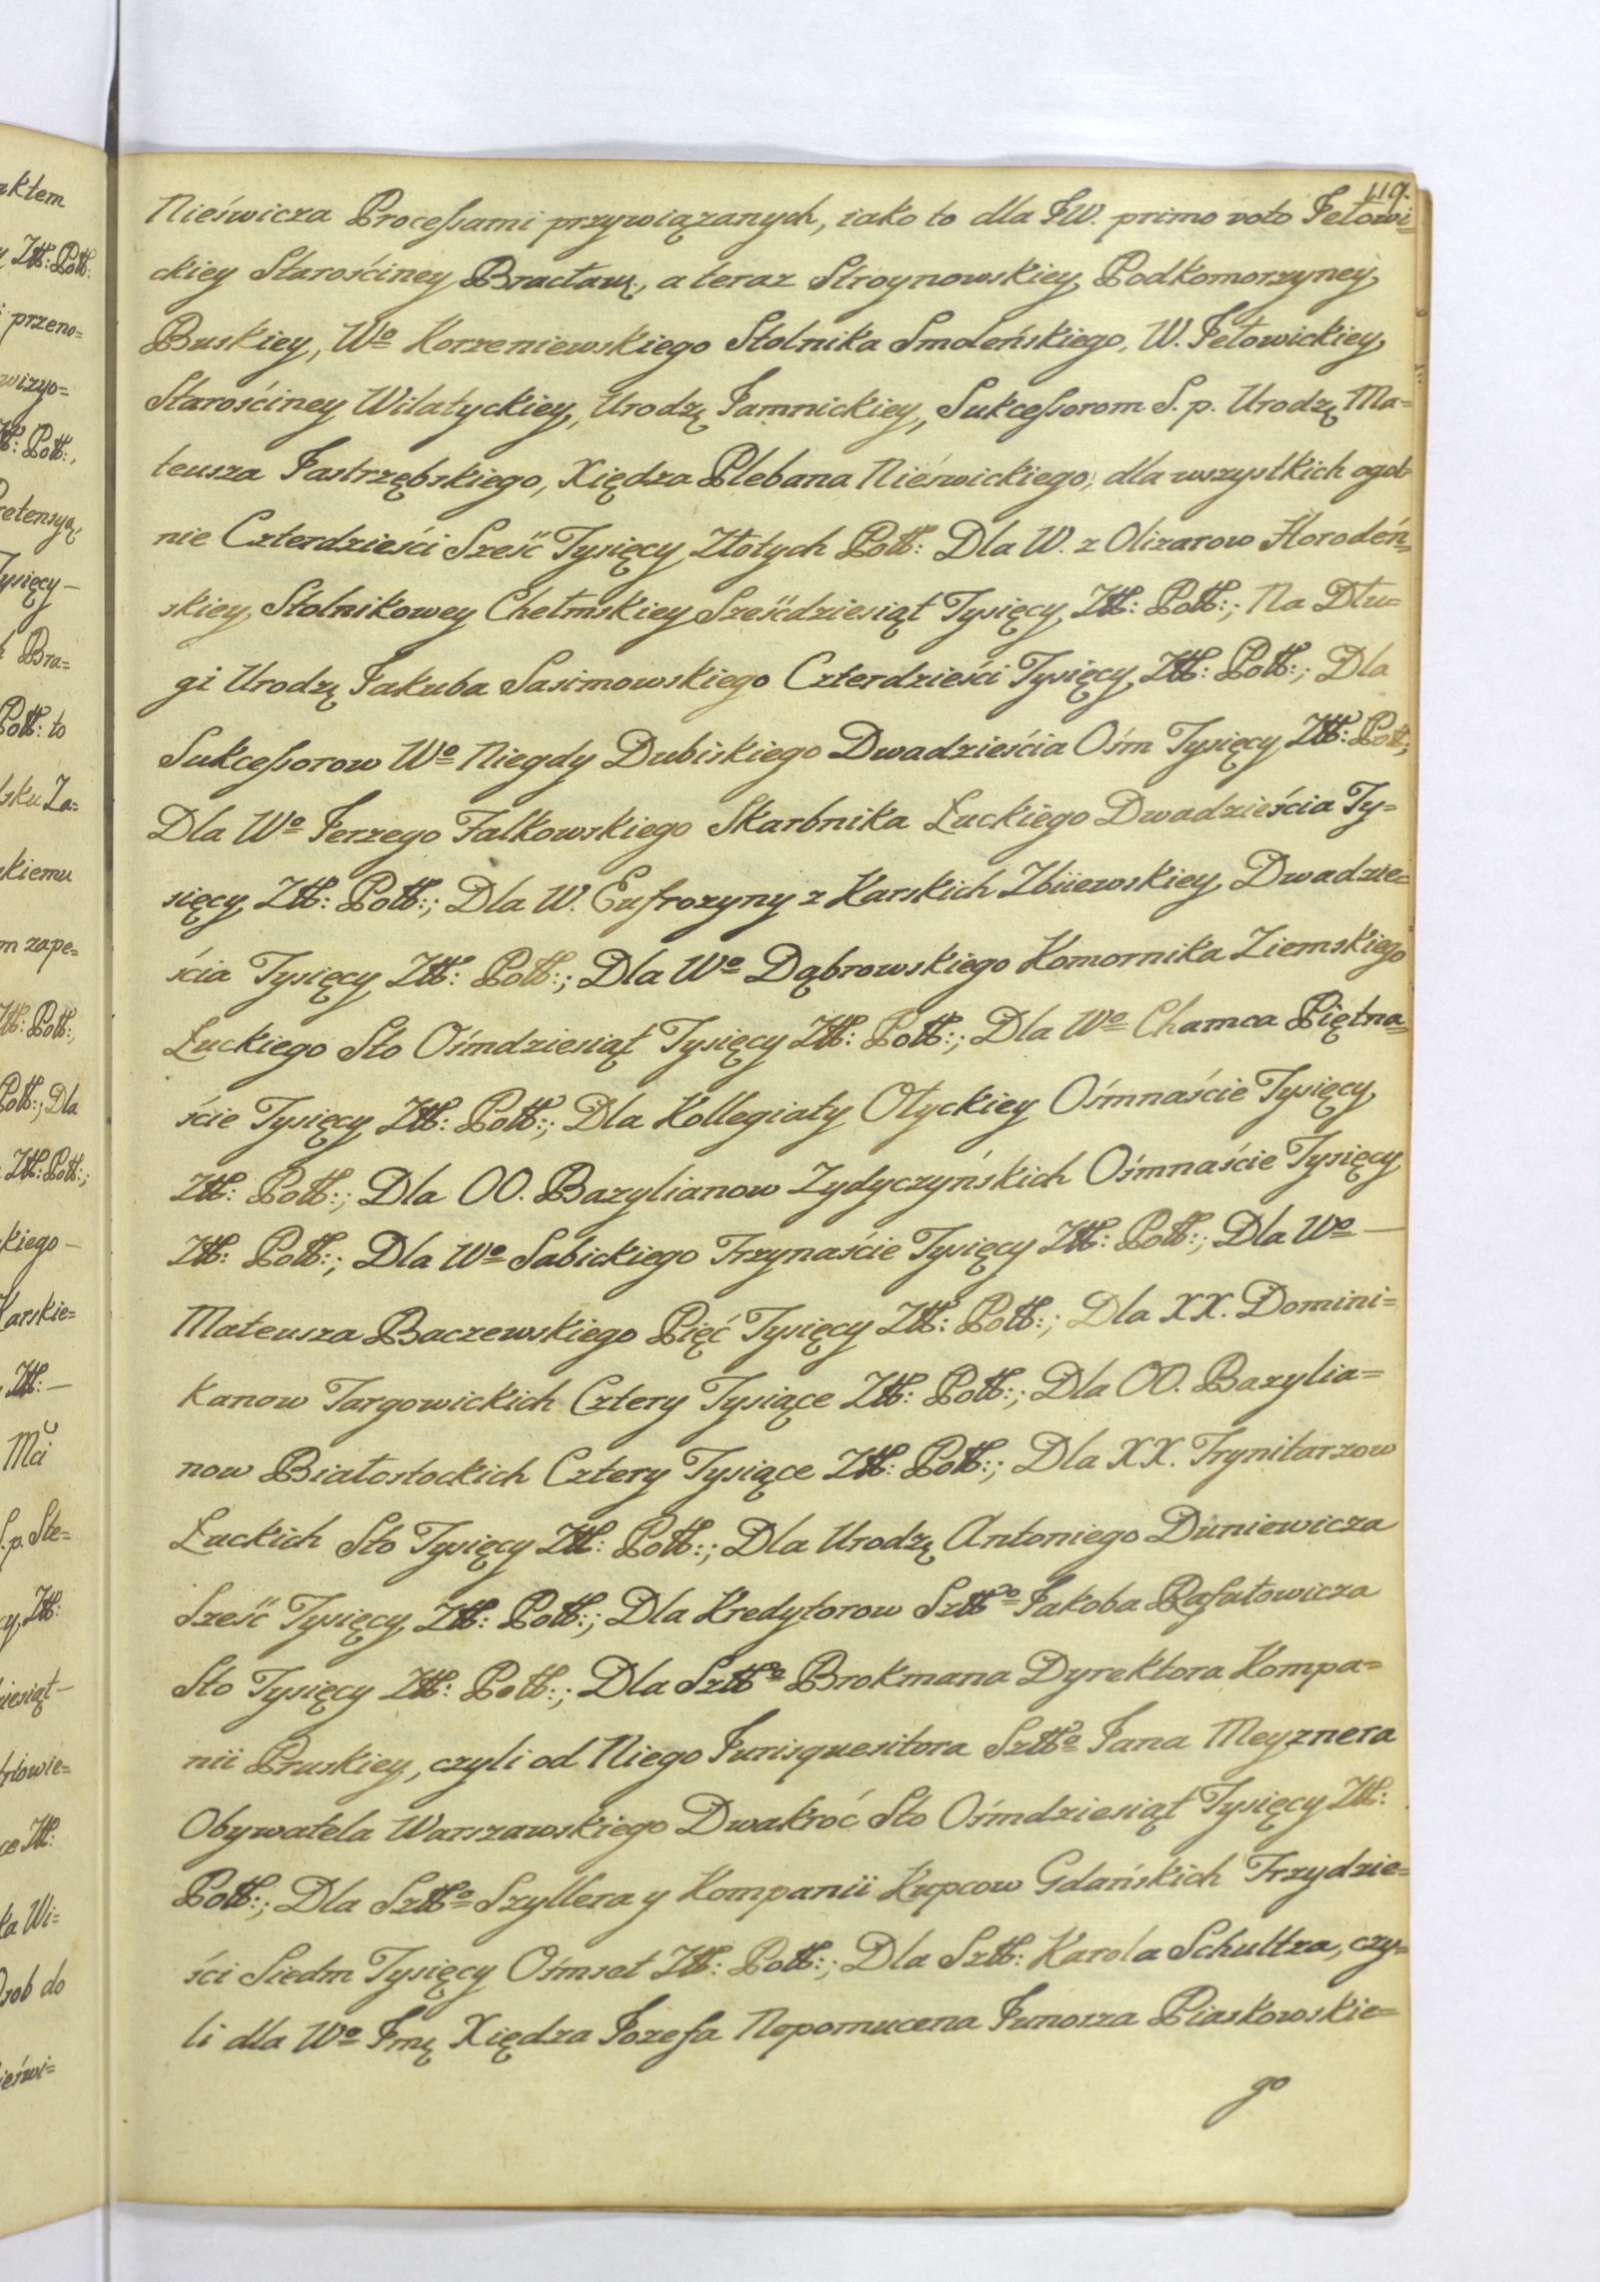 119.
Nieświcza Processami przywiązanych, iako to dla JW. primo voto Jełowi=
ckiey Starościney Bracław:, a teraz Stroynowskiey Podkomorzyney
Buskiey, Wº Korzeniewskiego Stolnika Smoleńskiego, W. Jełowickiey
Starościney Wilatyckiey, Urodzę Jamnickiey, Sukcessorom S. p. Urodzę Ma=
teusza Jastrzębskiego, Xiędza Plebana Nieświckiego, dla wszystkich ogol=
nie Czterdzieści Sześć Tysięcy Złotych Poll: Dla W. z Olizarow Horodeń=
skiey Stolnikowey Chełmskiey Sześćdziesiąt Tysięcy Złł: Poll:; Na Dłu=
gi Urodzę Jakuba Sasimowskiego Czterdzieści Tysięcy Złł: Poll:; Dla
Sukcessorow Wº Niegdy Dubiskiego Dwadzieścia Ośm Tysięcy Złł: Poll:;
Dla Wº Jerzego Falkowskiego Skarbnika Łuckiego Dwadzieścia Ty=
sięcy Złł: Poll:; Dla W. Eufrozyny z Karskich Zbiiewskiey Dwadzie=
ścia Tysięcy Złł: Poll:; Dla Wº Dąbrowskiego Komornika Ziemskiego
Łuckiego Sto Ośmdziesiąt Tysięcy Złł: Poll:; Dla Wº Chamca Piętna=
ście Tysięcy Złł: Poll:; Dla Kollegiaty Ołyckiey Ośmnaście Tysięcy
Złł: Poll:; Dla OO. Bazylianow Zydyczyńskich Ośmnaście Tysięcy
Złł: Poll:; Dla Wº Sabickiego Trzynaście Tysięcy Złł: Poll:; Dla Wº —
Mateusza Baczewskiego Pięć Tysięcy Złł: Poll:; Dla XX. Domini=
kanow Targowickich Cztery Tysiące Złł: Poll:; Dla OO. Bazylia=
now Białostockich Cztery Tysiące Złł: Poll:; Dla XX. Trynitarzow
Łuckich Sto Tysięcy Złł: Poll:; Dla Urodzę Antoniego Duniewicza
Sześć Tysięcy Złł: Poll:; Dla Kredytorow Szłłº Jakoba Rafałowicza
Sto Tysięcy Złł: Poll:; Dla Szłłº Brokmana Dyrektora Kompa=
nii Pruskiey, czyli od Niego Jurisquesitora Szłłº Jana Meyznera
Obywatela Warszawskiego Dwakroć Sto Ośmdziesiąt Tysięcy Złł:
Poll:; Dla Szłłº Szyllera y Kompanii Kupcow Gdańskich Trzydzie=
ści Siedm Tysięcy Ośmset Złł: Poll:; Dla Szłł: Karola Schultza, czy=
li dla Wº Jmę Xiędza Jozefa Nepomucena Junosza Piaskowskie=
go